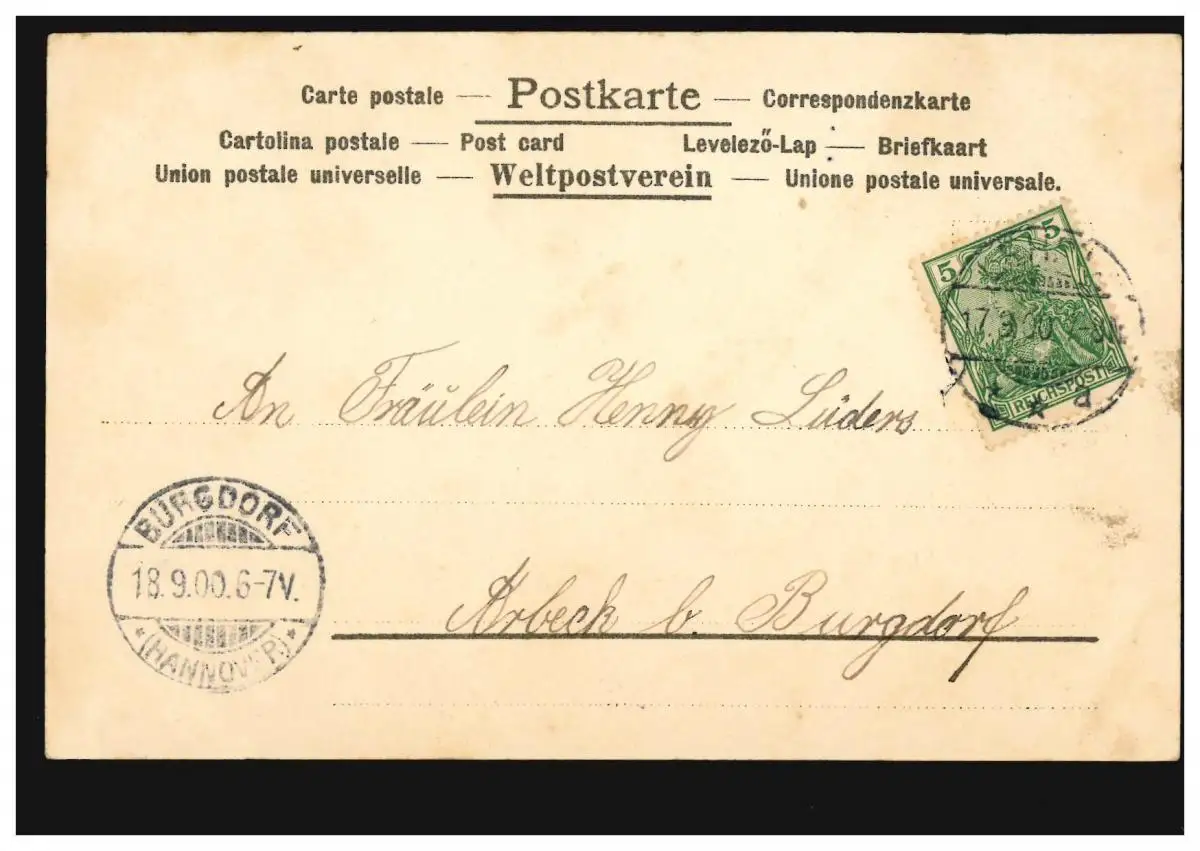 Carte postale — Postkarte — Correspondenzkarte
Cartolina postale — Post card Levelező-Lap — Briefkaart
Union postale universelle — Weltpostverein — Unione postale universale.
5 5
17.9.00
REICHSPOST
An Fräulein Henny Lüders
BURGDORF
18.9.00.6-7V.
*(HANNOVER)*
Arbeck b. Burgdorf